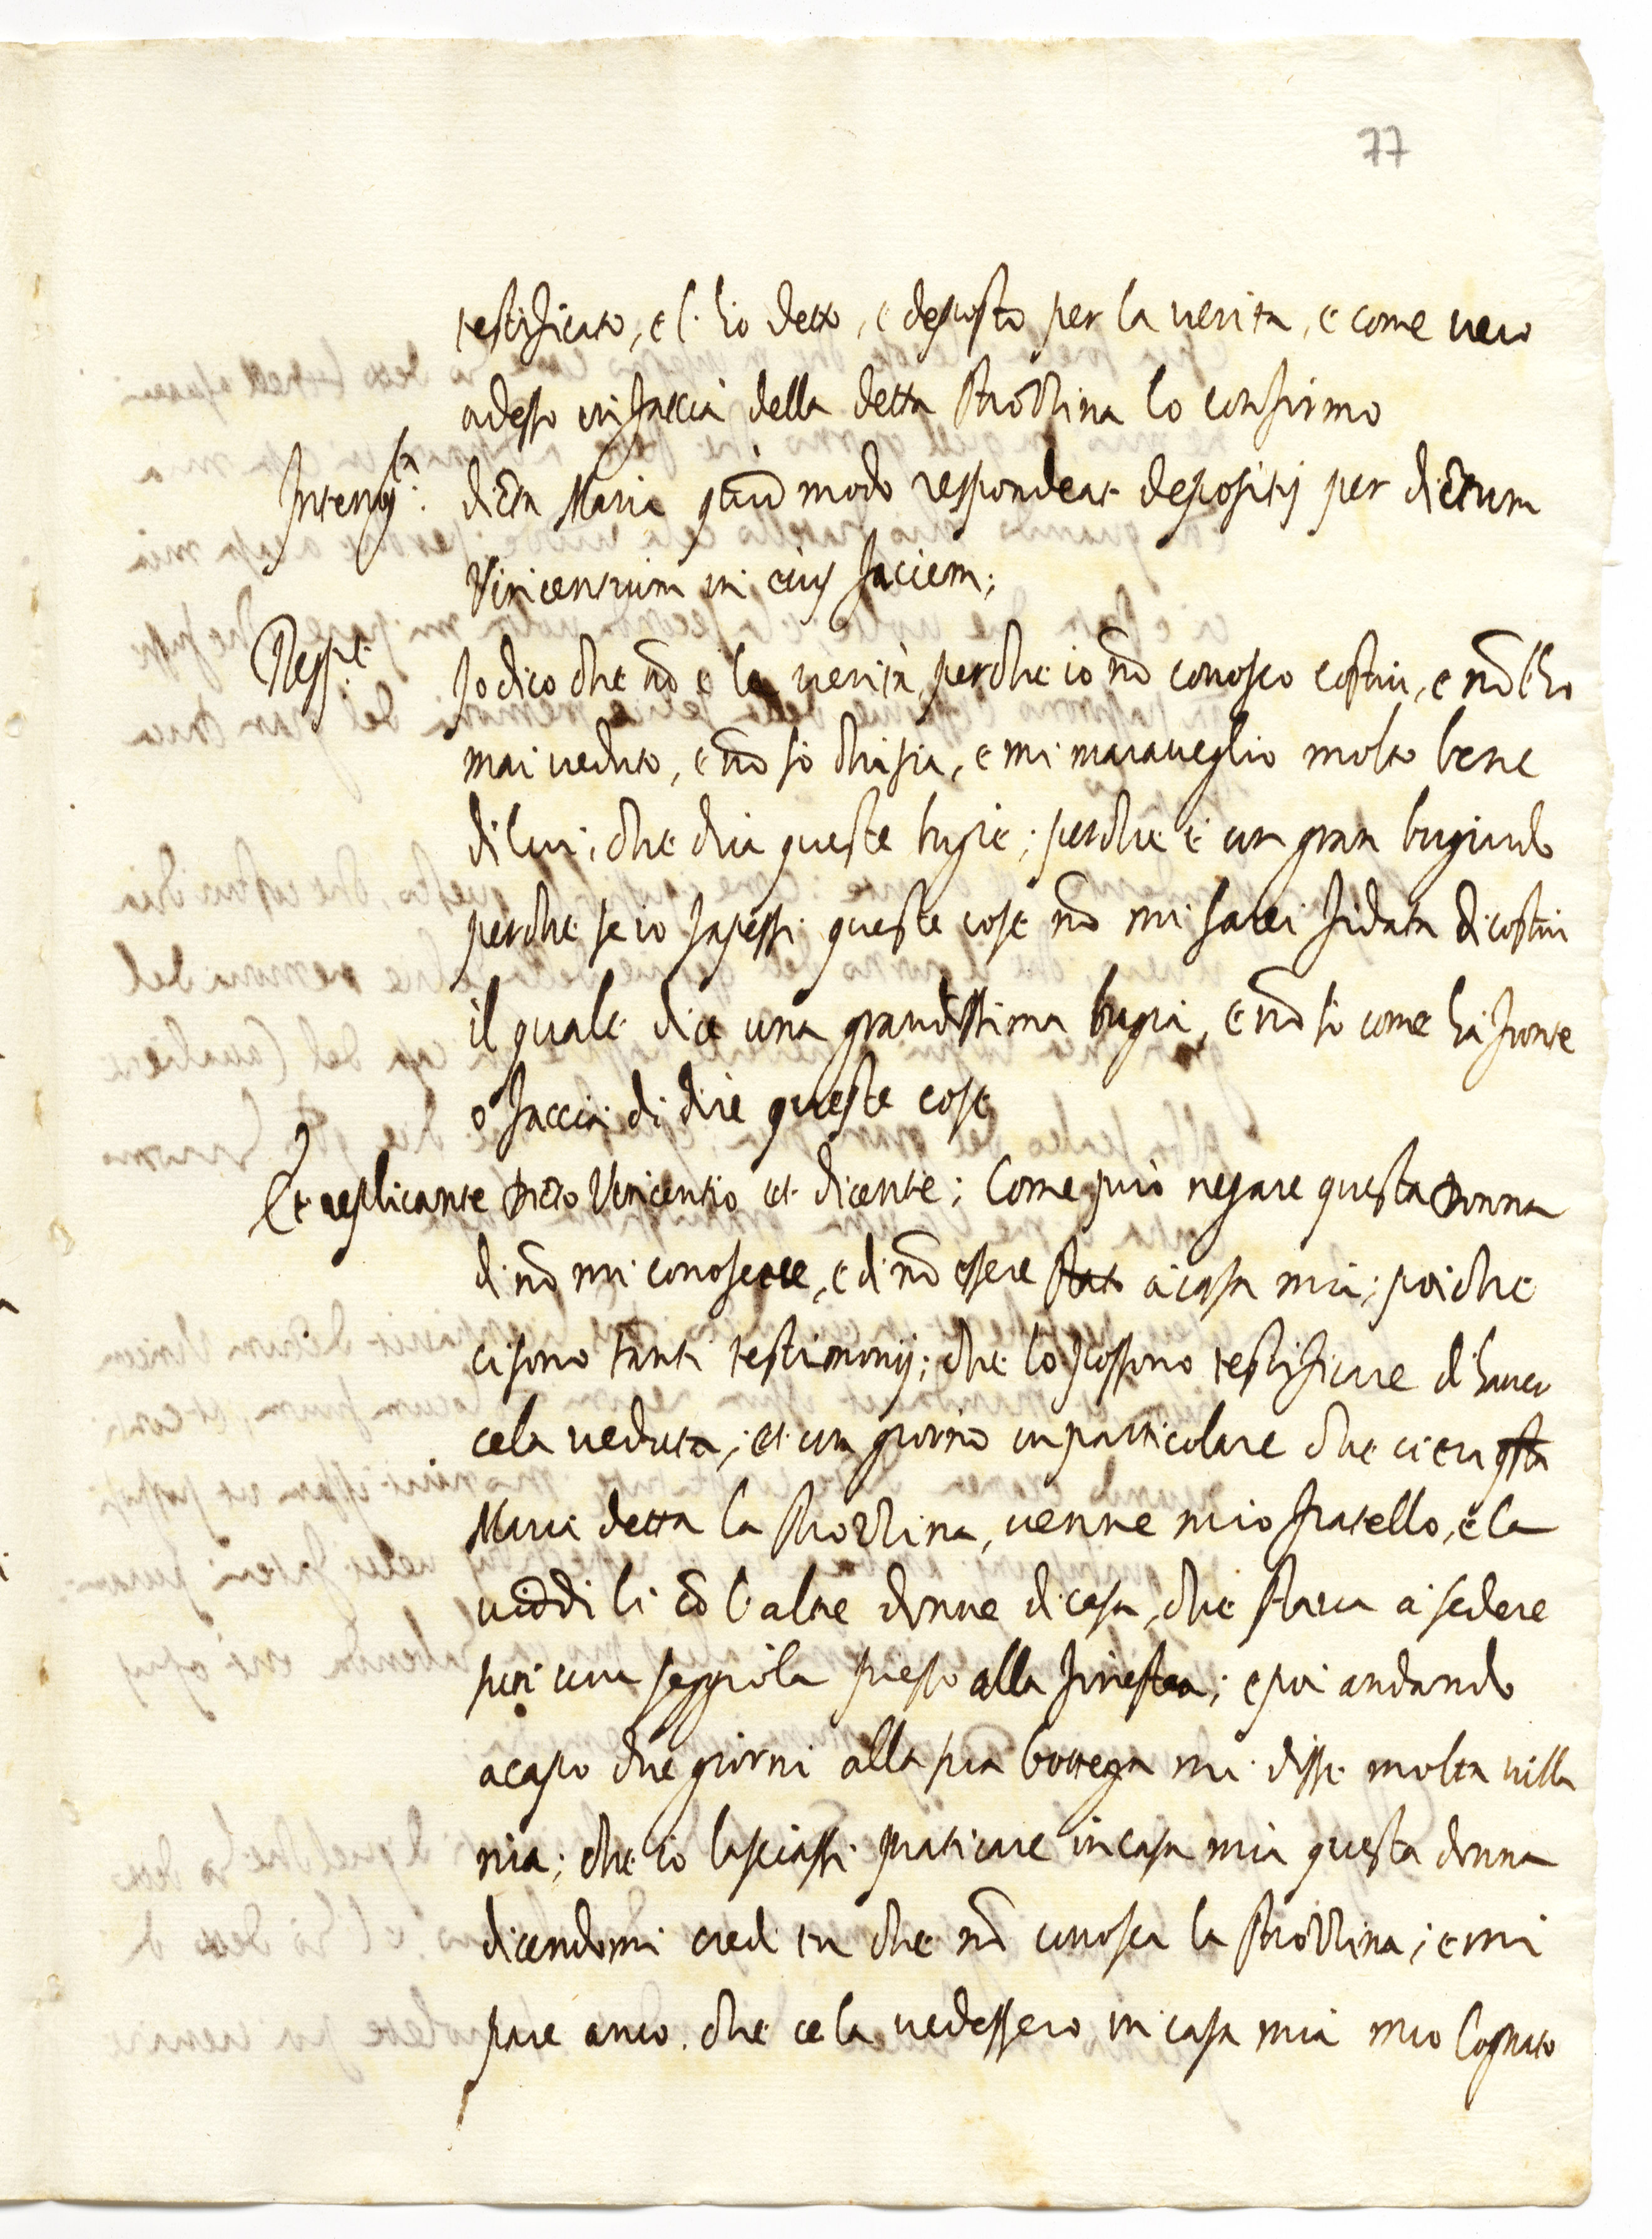 77
testificato, e l'ho detto, e deposto per la verita, e come vero
adesso in faccia della detta Strozzina lo confirmo
Interrog.ta dicta Maria quid modo respondeat depositis per dictum
Vincentium in eius faciem;
Resp.t Io dico che nõ è la verità, perche io nõ conosco costui, e nõ l'ho
mai veduto, e nõ so chi sia, e mi maraveglio molto bene
di lui, che dia queste bugie; perche è un gran bugiardo
perche se io sapessi queste cose nõ mi sarei fidata di costui
il quale dice una grandissima bugia, e nõ so come ha fronte
o faccia di dire queste cose
Et replicante dicto Vincentio et dicente; Come può negare questa donna
di nõ mi conoscere, e di nõ essere stata à casa mia; poiche
ci sono tanti testimonij; che lo possono testificare d'haver
cela veduta; et un giorno in particolare che ci era qsta
Maria detta la Strozzina, venne mio fratello, e la
vidde li cõ l'altre donne di casa, che stava à sedere
su una seggiola presso alla finestra; e poi andando
a capo due giorni alla sua bottega mi disse molta villa
nia; che io lasciassi praticare in casa mia questa donna
dicendomi credi tu che nõ conosca la Strozzina; e mi
pare anco che ce la vedessero in casa mia mio Cognato